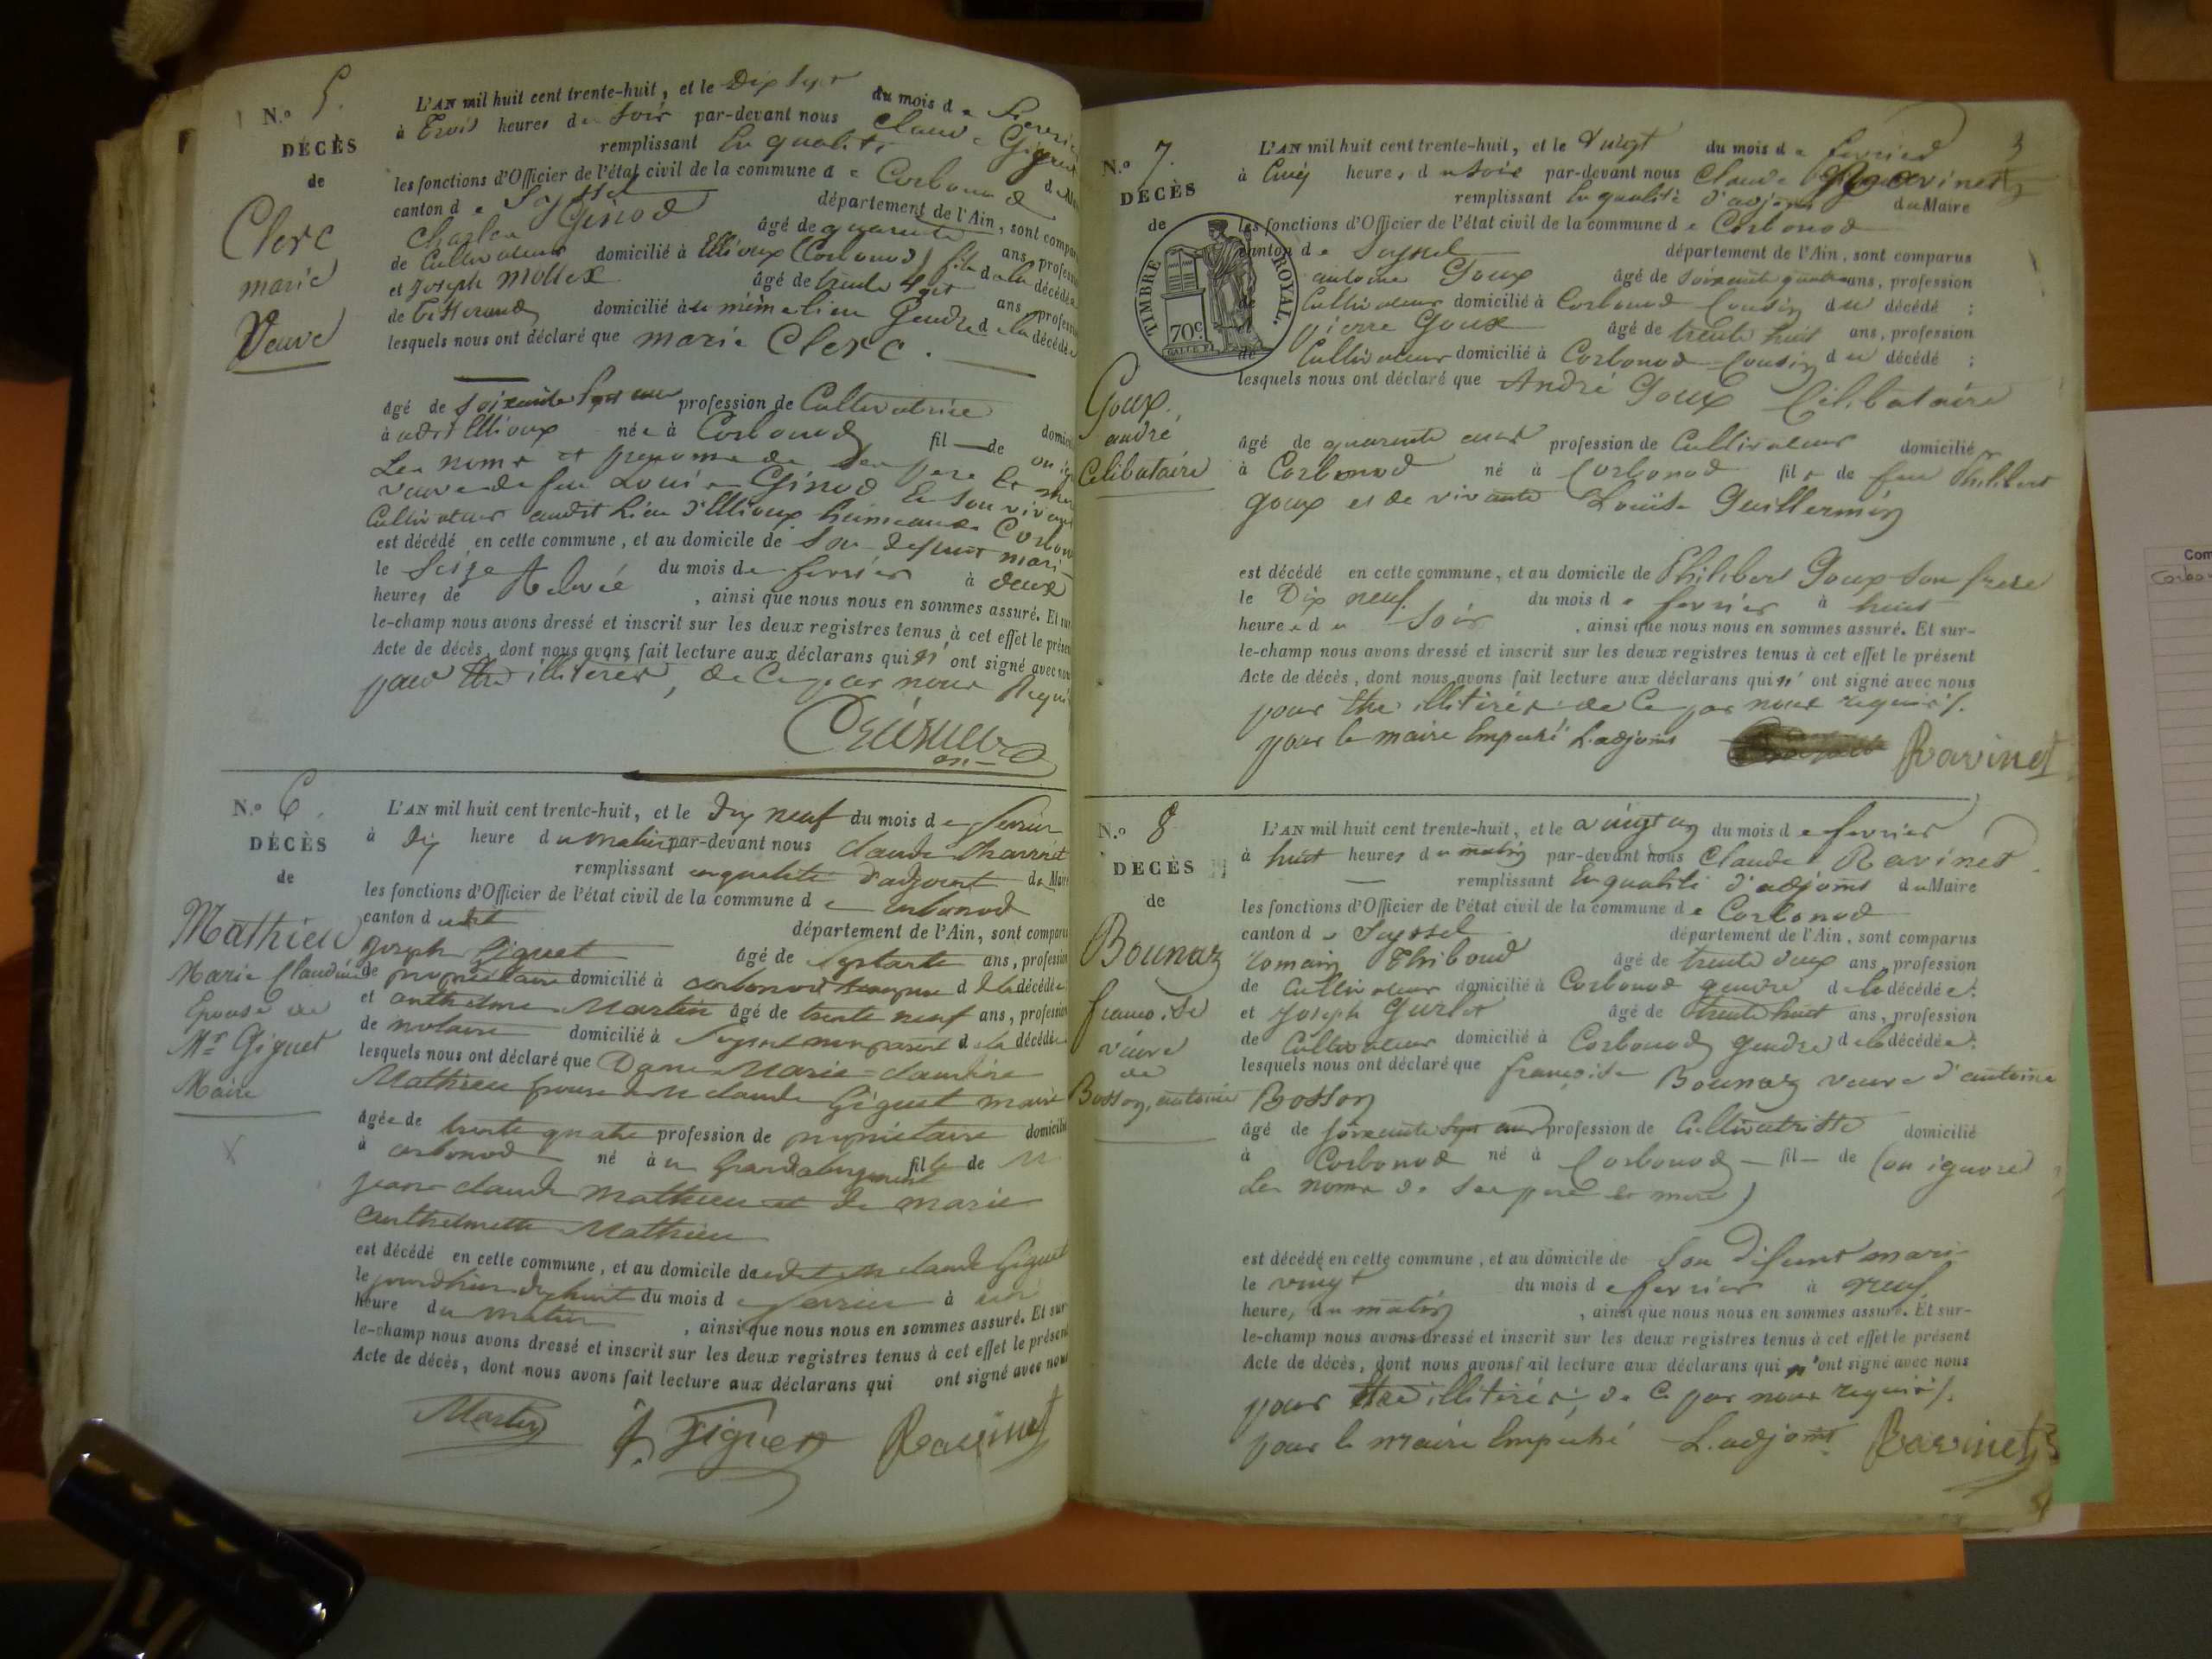 N.º 5.
DÉCÈS
de
Clerc
marie
Veuve
L'AN mil huit cent trente-huit, et le Dix Sept du mois de
à Trois heures du Soir par-devant nous Claude Giguet
remplissant En qualité
les fonctions d'Officier de l'état civil de la commune de Corbonod
canton de Seyssel département de l'Ain, sont
Charles Ginod âgé de quarante ans,
de Cultivateur domicilié à Ellioux (Corbonod) fils de la décédée
et Joseph Mollex âgé de trente Sept ans,
de domicilié au même lieu Gendre de la décédée
lesquels nous ont déclaré que marie Clerc.
âgé de Soixante Sept ans profession de Cultivatrice
à udit Ellioux née à Corbonod fil — de on
Les noms et prenoms de Ses père Et
veuve de feu Louis Ginod En Son vivant
Cultivateur audit Lieu d'Ellioux hameau de
est décédé en cette commune, et au domicile de Son defunt mari
le Seize du mois de fevrier à deux
heures de Relevée , ainsi que nous nous en sommes assuré. Et
le-champ nous avons dressé et inscrit sur les deux registres tenus à cet effet le
Acte de décès, dont nous avons fait lecture aux déclarans qui n'ont signé avec nous
pour être illiterés, de Ce par nous Requis
N.º 6.
DÉCÈS
de
Mathieu
Marie Claudine
Epouse de
Mr Giguet
Maire
L'AN mil huit cent trente-huit, et le dix neuf du mois de fevrier
à dix heure du matin par-devant nous claude
remplissant en qualité d'adjoint du Maire
les fonctions d'Officier de l'état civil de la commune de corbonod
canton dudit département de l'Ain, sont
joseph Giguet âgé de septante ans,
de propriétaire domicilié à corbonod de la décédée
et anthelme Martin âgé de trente neuf ans,
de notaire domicilié à Seyssel non parent de la décédée
lesquels nous ont déclaré que Dame Marie claudine
Mathieu épouse de M claude Giguet maire
âgée de trente quatre profession de propriétaire
à corbonod né à au Grand abergement fille de M
jean claude Mathieu et de marie
anthelmette Mathieu
est décédé en cette commune, et au domicile dudit M claude Giguet
le jourdhier dix huit du mois de fevrier à
heure du matin , ainsi que nous nous en sommes assuré. Et sur
le-champ nous avons dressé et inscrit sur les deux registres tenus à cet effet le présent
Acte de décès, dont nous avons fait lecture aux déclarans qui ont signé avec nous
Martin J. Giguet Ravinet
3
N.º 7.
DÉCÈS
de
TIMBRE ROYAL.
70c.
Goux
andré
Célibataire
L'AN mil huit cent trente-huit, et le Vingt du mois de fevrier
à Cinq heures du Soir par-devant nous Claude Ravinet
remplissant En qualité d'adjoint du Maire
les fonctions d'Officier de l'état civil de la commune de Corbonod
canton de Seyssel département de l'Ain, sont comparus
antoine Goux âgé de Soixante quatre ans, profession
de Cultivateur domicilié à Corbonod Cousin du décédé ;
et pierre Goux âgé de trente huit ans, profession
de Cultivateur domicilié à Corbonod Cousin du décédé ;
lesquels nous ont déclaré que André Goux Célibataire
âgé de quarante ans profession de Cultivateur domicilié
à Corbonod né à Corbonod fils de feu Philibert
Goux et de vivante Louise Guillermin
est décédé en cette commune, et au domicile de Philibert Goux Son frere
le Dix neuf du mois de fevrier à huit
heure du Soir , ainsi que nous nous en sommes assuré. Et sur-
le-champ nous avons dressé et inscrit sur les deux registres tenus à cet effet le présent
Acte de décès, dont nous avons fait lecture aux déclarans qui n'ont signé avec nous
pour être illitérés de Ce par nous requis.
pour le maire Empêché L'adjoint Ravinet
N.º 8
DÉCÈS
de
Bounaz
francoise
veuve
de
Bosson, antoine
L'AN mil huit cent trente-huit, et le vingt un du mois de fevrier
à huit heures du matin par-devant nous Claude Ravinet
remplissant En qualité d'adjoint du Maire
les fonctions d'Officier de l'état civil de la commune de Corbonod
canton de Seyssel département de l'Ain, sont comparus
romain Thiboud âgé de trente deux ans, profession
de Cultivateur domicilié à Corbonod gendre de la décédée.
et Joseph Gurlot âgé de trente huit ans, profession
de Cultivateur domicilié à Corbonod gendre de la décédée.
lesquels nous ont déclaré que françoise Bounaz veuve d'antoine
Bosson
âgé de Soixante Sept ans profession de Cultivatrice domicilié
à Corbonod né à Corbonod — fil — de (on ignore
Les noms de Ses père et mère)
est décédé en cette commune, et au domicile de Son défunt mari
le vingt du mois de fevrier à neuf
heure, du matin , ainsi que nous nous en sommes assuré. Et sur-
le-champ nous avons dressé et inscrit sur les deux registres tenus à cet effet le présent
Acte de décès, dont nous avons fait lecture aux déclarans qui n'ont signé avec nous
pour être illitérés, de Ce par nous requis.
pour le maire Empêché L'adjoint Ravinet